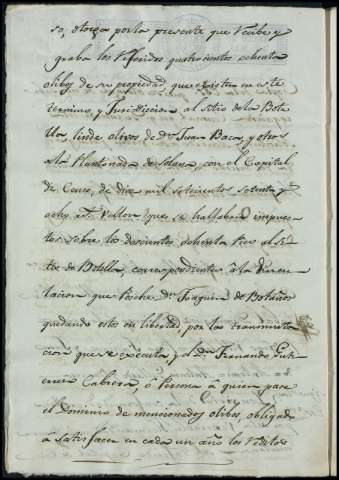 so, otorga por la presente que recibe y
graba los referidos quatrocientos ochenta
olibos de su propiedad que existen en este
termino, y Jurisdiccion al sitio de la Bote
lla linde olivos de Dn Juan Baca, y otros
a la Plantonada de Solusa, con el Capital
de Censo, de diez mil setecientos setenta y
ocho rs. Vellon que se hallaban impues
tos sobre los doscientos ochenta pies al si
tio de Botella, correspondientes á la
lacion que Dn Joaquin de Bolaños
quedando estos en libertad, por la transmuta
cion que se executa, y el Dn Fernando Gut
Cabrera, ó Persona á quien pase
el Dominio de mencionados olibos, obligado
á satisfacer en cada un año los reditos